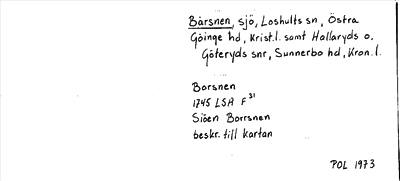 Bårsnen, sjö, Loshults sn, Östra
Göinge hd, Krist.l. samt Hallaryds o.
Göteryds snr, Sunnerbo hd, Kron.l.
Borsnen
1745 LSA F 31
Siöen Borrsnen
beskr. till kartan
POL 1973